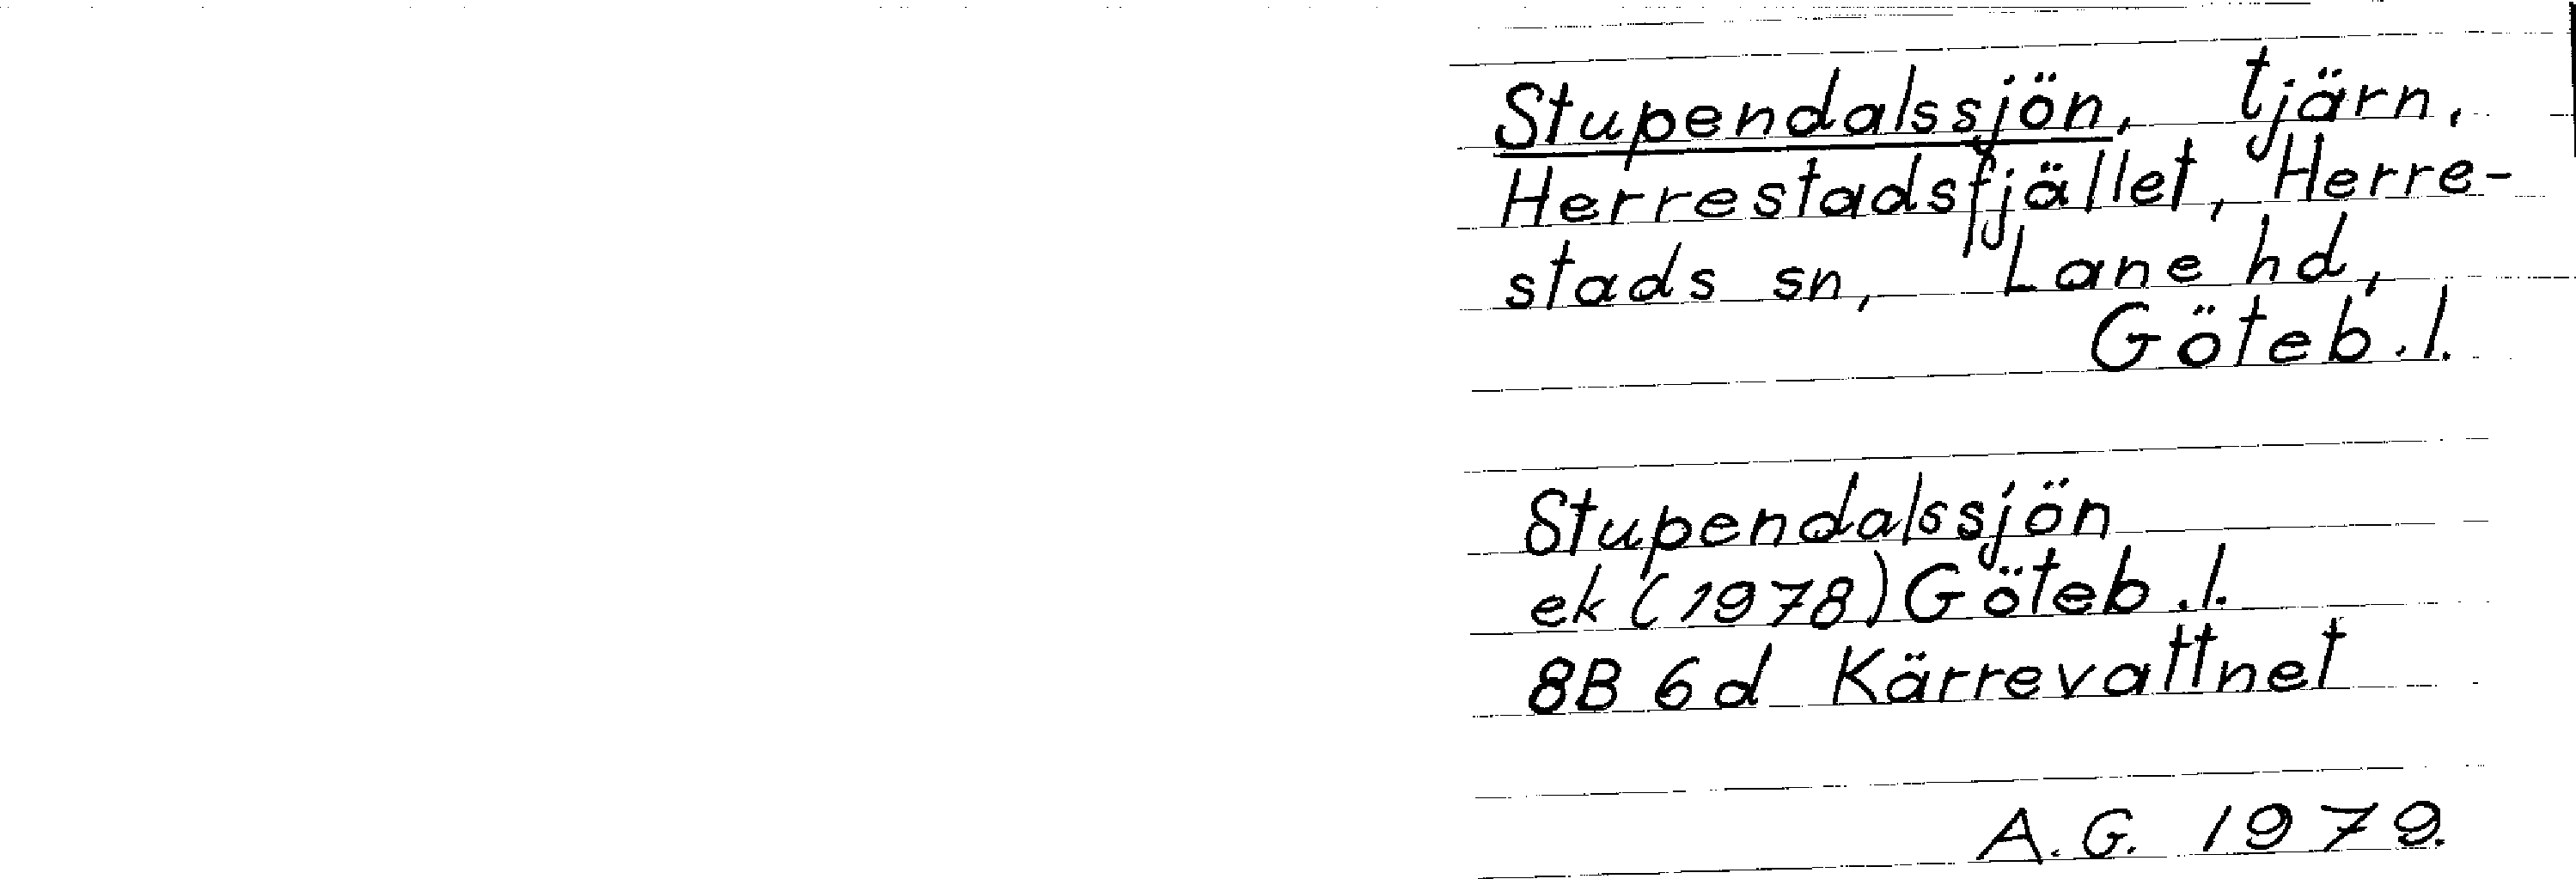 Stupendalssjön, tjärn,
Herrestadsfjället, Herre-
stads sn, Lane hd,
Göteb.l.
Stupendalssjön
ek (1978) Göteb.l.
8B 6d Kärrevattnet
A.G. 1979.